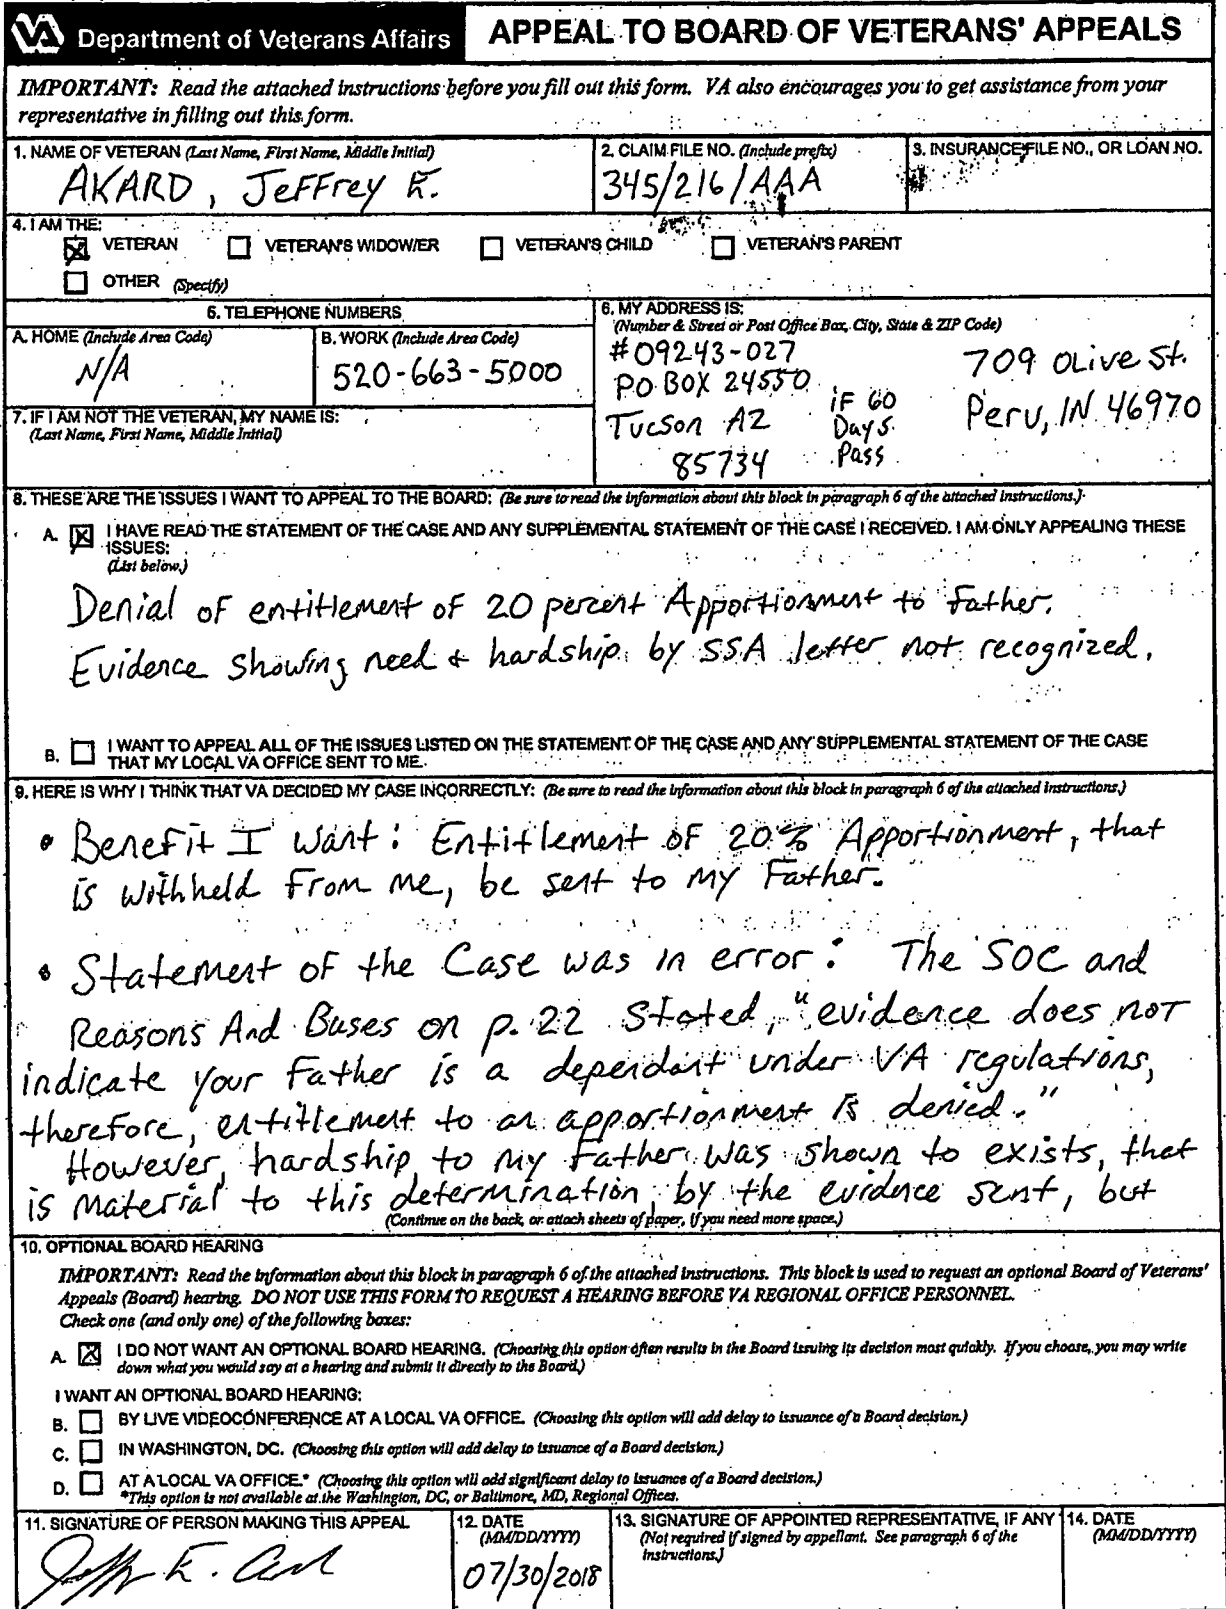 VA Department of Veterans Affairs
APPEAL TO BOARD OF VETERANS' APPEALS
IMPORTANT: Read the attached instructions before you fill out this form. VA also encourages you to get assistance from your
representative in filling out this form.
1. NAME OF VETERAN (Last Name, First Name, Middle Initial)
AKARD, Jeffrey E.
2. CLAIM FILE NO. (Include prefix)
345/216/AAA
3. INSURANCE FILE NO., OR LOAN NO.
4. I AM THE:
VETERAN
VETERAN'S WIDOW/ER
VETERAN'S CHILD
VETERAN'S PARENT
OTHER (Specify)
5. TELEPHONE NUMBERS
A. HOME (Include Area Code)
N/A
B. WORK (Include Area Code)
520-663-5000
6. MY ADDRESS IS:
(Number & Street or Post Office Box, City, State & ZIP Code)
#09243-027
PO BOX 24550
Tucson AZ
85734
iF 60
Days
Pass
709 Olive St.
Peru, IN 46970
7. IF I AM NOT THE VETERAN, MY NAME IS:
(Last Name, First Name, Middle Initial)
8. THESE ARE THE ISSUES I WANT TO APPEAL TO THE BOARD: (Be sure to read the information about this block in paragraph 6 of the attached instructions.)
A. I HAVE READ THE STATEMENT OF THE CASE AND ANY SUPPLEMENTAL STATEMENT OF THE CASE I RECEIVED. I AM ONLY APPEALING THESE
ISSUES:
(List below.)
Denial of entitlement of 20 percent Apportionment to father.
Evidence showing need & hardship by SSA letter not recognized.
B. I WANT TO APPEAL ALL OF THE ISSUES LISTED ON THE STATEMENT OF THE CASE AND ANY SUPPLEMENTAL STATEMENT OF THE CASE
THAT MY LOCAL VA OFFICE SENT TO ME.
9. HERE IS WHY I THINK THAT VA DECIDED MY CASE INCORRECTLY: (Be sure to read the information about this block in paragraph 6 of the attached instructions.)
• Benefit I Want: Entitlement of 20% Apportionment, that
is withheld from me, be sent to my Father.
• Statement of the Case was in error: The SOC and
Reasons And Bases on p. 22 Stated, "evidence does not
indicate your father is a dependant under VA regulations,
therefore, entitlement to an apportionment is denied."
However, hardship to my father was shown to exists, that
is material to this determination, by the evidence sent, but
(Continue on the back, or attach sheets of paper, if you need more space.)
10. OPTIONAL BOARD HEARING
IMPORTANT: Read the information about this block in paragraph 6 of the attached instructions. This block is used to request an optional Board of Veterans'
Appeals (Board) hearing. DO NOT USE THIS FORM TO REQUEST A HEARING BEFORE VA REGIONAL OFFICE PERSONNEL.
Check one (and only one) of the following boxes:
A. I DO NOT WANT AN OPTIONAL BOARD HEARING. (Choosing this option often results in the Board issuing its decision most quickly. If you choose, you may write
down what you would say at a hearing and submit it directly to the Board.)
I WANT AN OPTIONAL BOARD HEARING:
B. BY LIVE VIDEOCONFERENCE AT A LOCAL VA OFFICE. (Choosing this option will add delay to issuance of a Board decision.)
C. IN WASHINGTON, DC. (Choosing this option will add delay to issuance of a Board decision.)
D. AT A LOCAL VA OFFICE.* (Choosing this option will add significant delay to issuance of a Board decision.)
*This option is not available at the Washington, DC, or Baltimore, MD, Regional Offices.
11. SIGNATURE OF PERSON MAKING THIS APPEAL
12. DATE
(MM/DD/YYYY)
07/30/2018
13. SIGNATURE OF APPOINTED REPRESENTATIVE, IF ANY
(Not required if signed by appellant. See paragraph 6 of the
instructions.)
14. DATE
(MM/DD/YYYY)